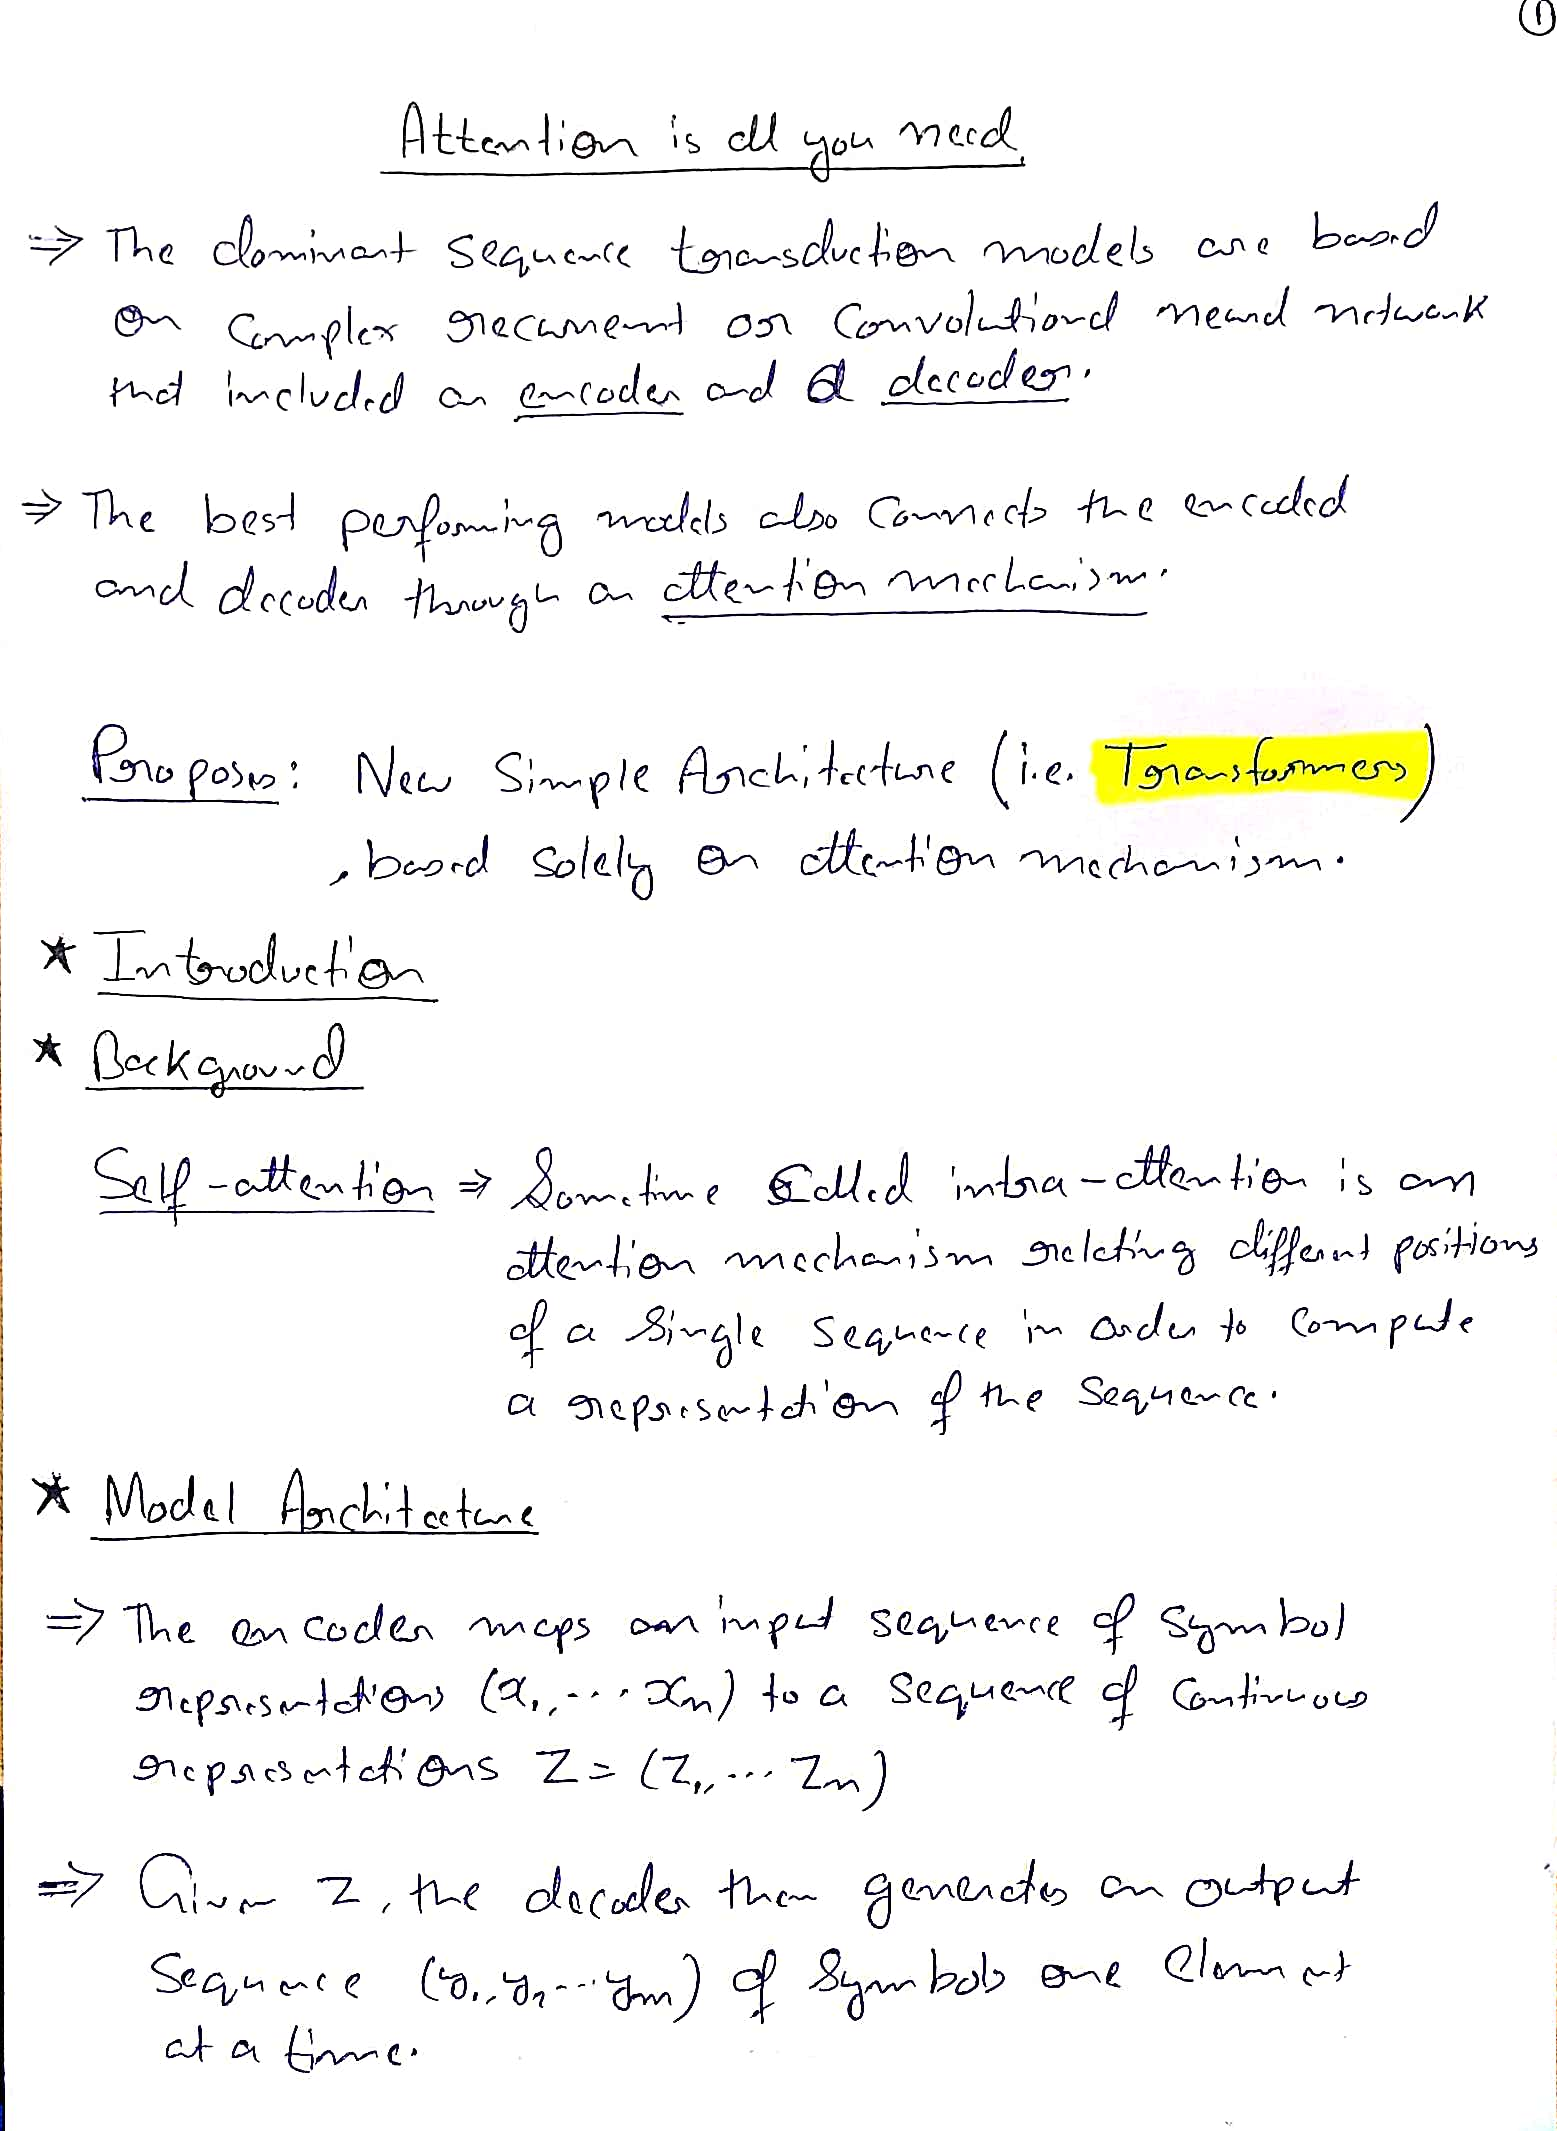 ①
Attention is all you need.
⇒ The dominant sequence transduction models are based
on Complex recurrent or Convolutional neural network
that included an encoder and a decoder.
⇒ The best performing models also Connects the encoded
and decoder through an attention mechanism.
Proposes: New Simple Architecture (i.e. Transformers)
, based solely on attention mechanism.
★ Introduction
★ Background
Self-attention ⇒ Sometime Called intra-attention is an
attention mechanism relating different positions
of a Single Sequence in order to Compute
a representation of the Sequence.
★ Model Architecture
⇒ The encoder maps an input sequence of Symbol
representations (x₁, ... xₙ) to a sequence of Continuous
representations Z = (Z₁,, ... Zₙ)
⇒ Given Z, the decoder then generates an output
Sequence (y₁, y₂ ... yₘ) of Symbols one Element
at a time.